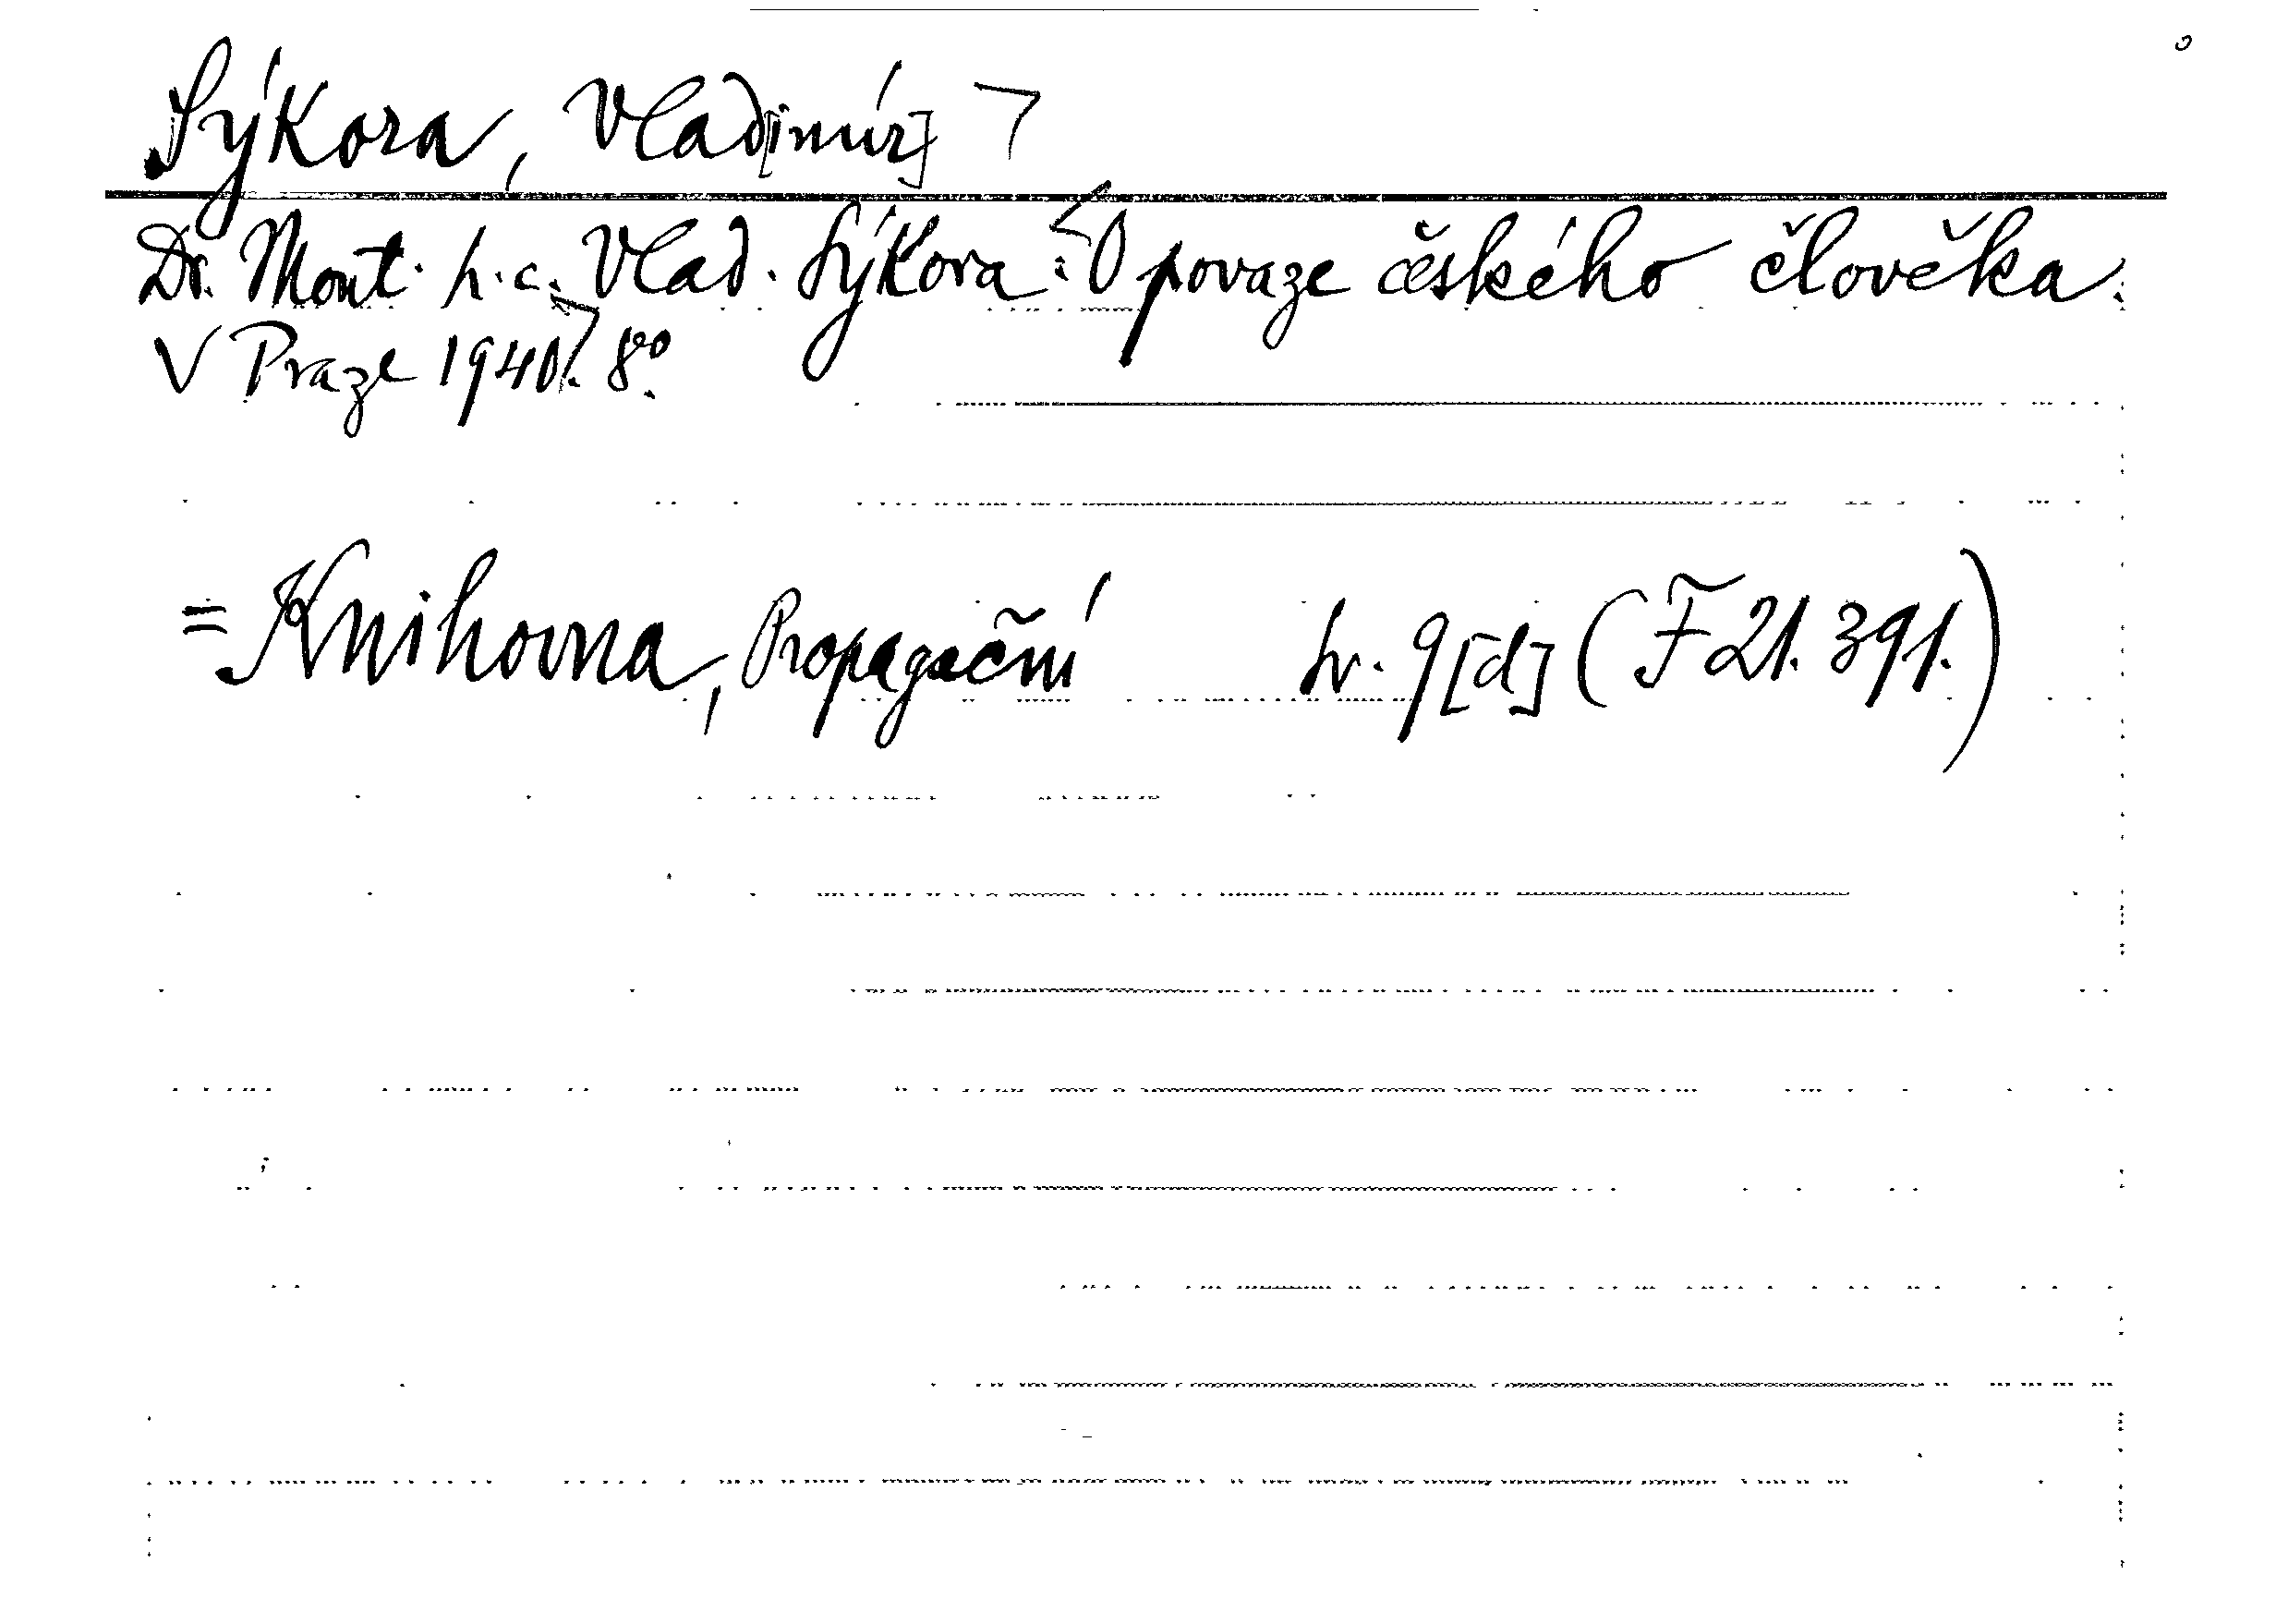 Sýkora, Vlad[imír]
Dr. Mont. h. c. Vlad. Sýkora: O povaze českého člověka.
V Praze 1940. 8°.
= Knihovna, Propagační sv. 9[d] (F 21.391.)